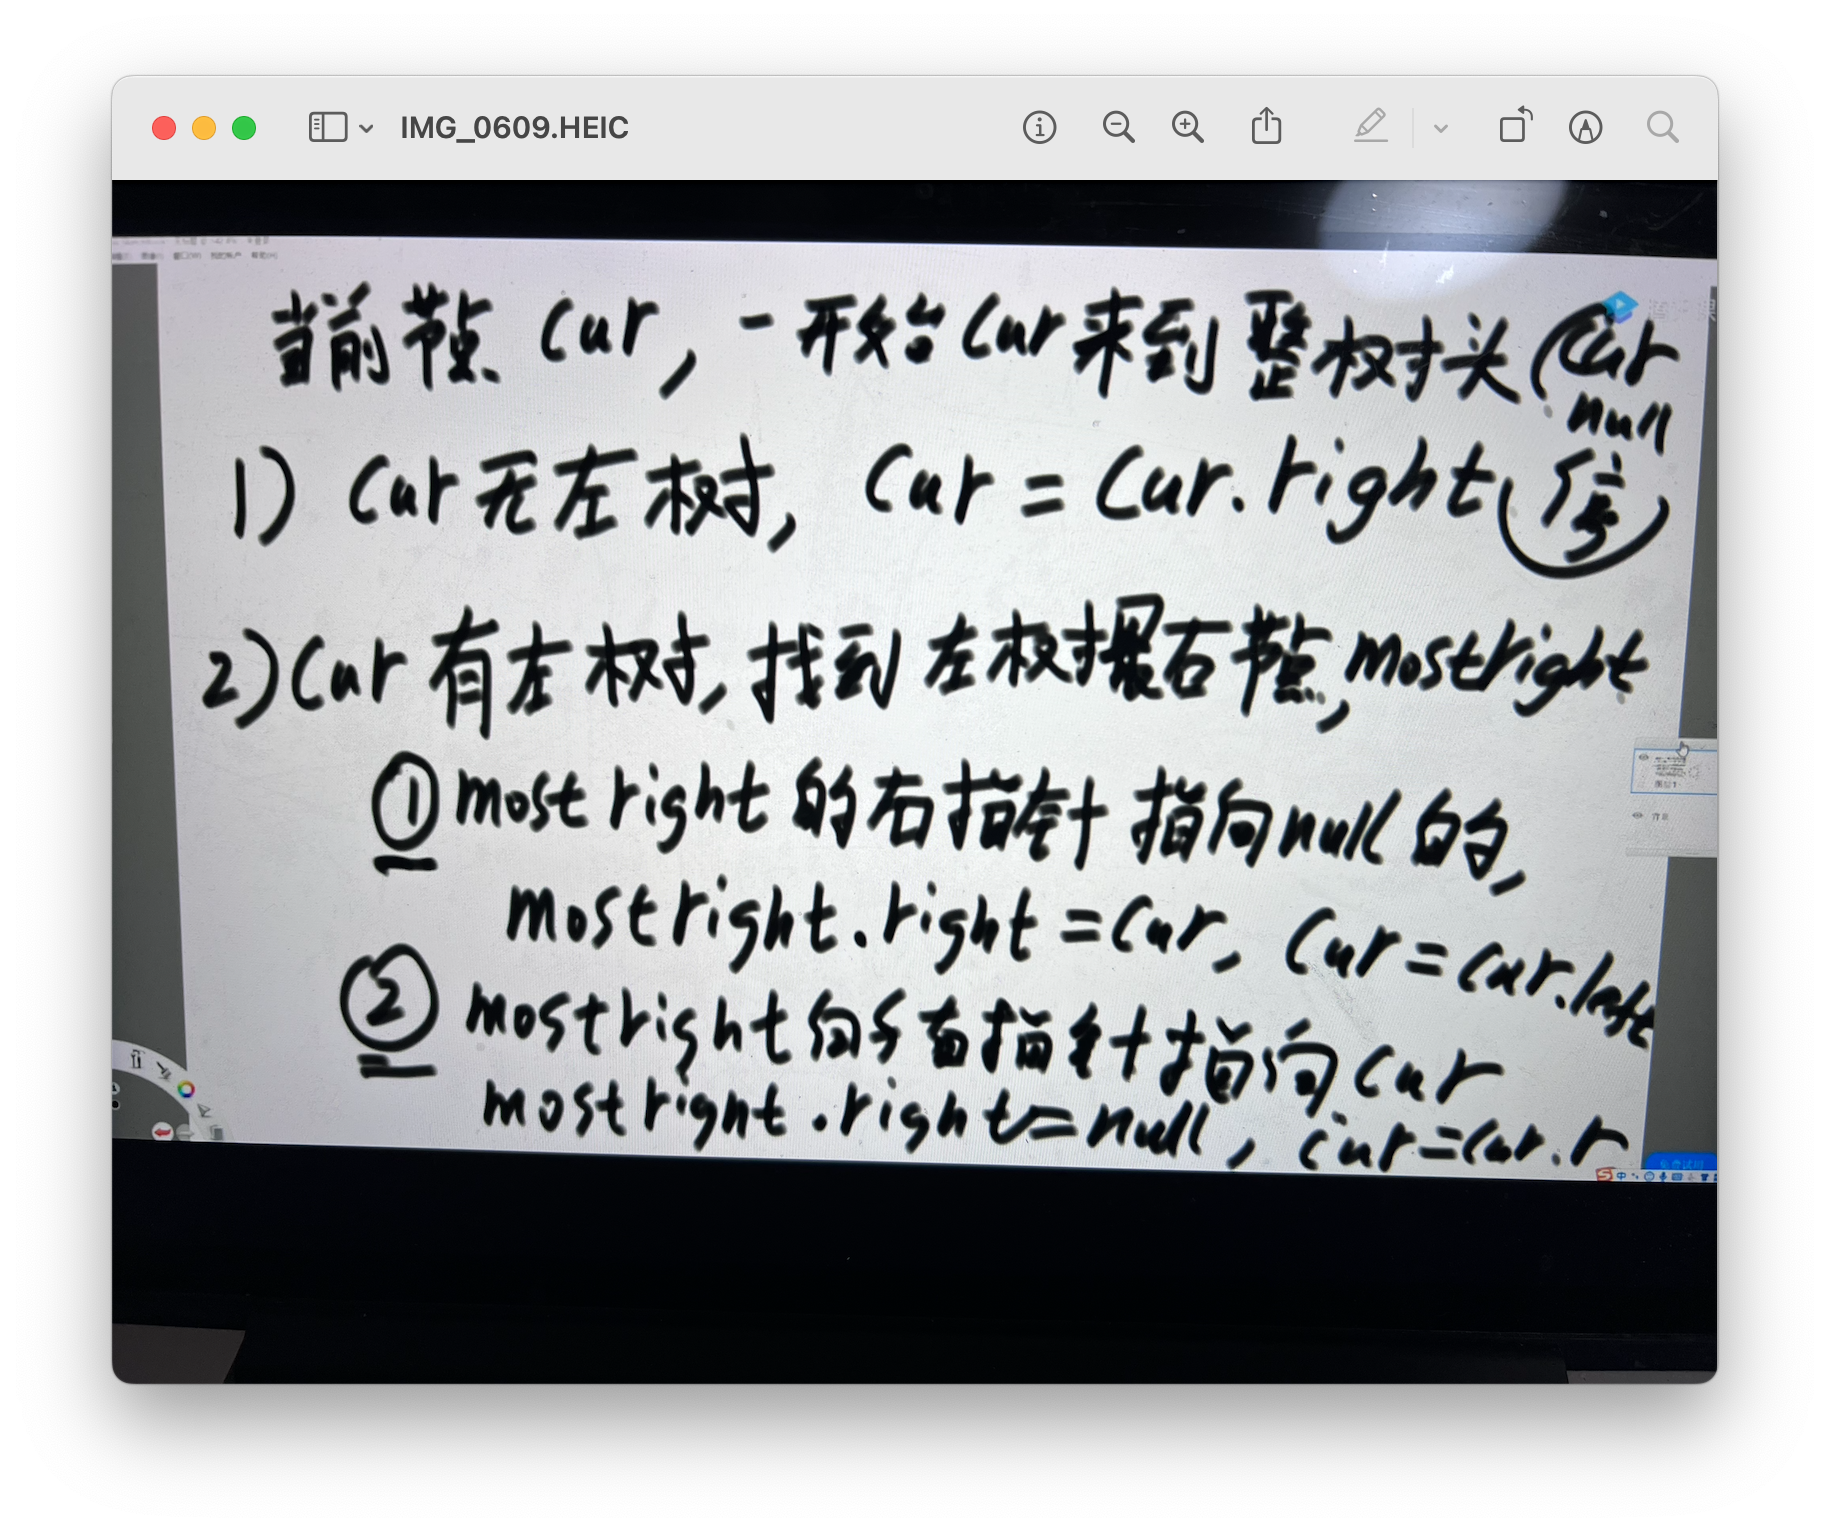 IMG_0609.HEIC
当前节点 Cur, 一开始Cur来到整树头(Cur
null
1) Cur无左树, Cur = Cur.right 停)
2) Cur有左树, 找到左树最右节点, mostright
① mostright的右指针指向null的,
mostright.right = Cur, Cur = Cur.left
② mostright的右指针指向Cur
mostright.right = null, Cur = Cur.r